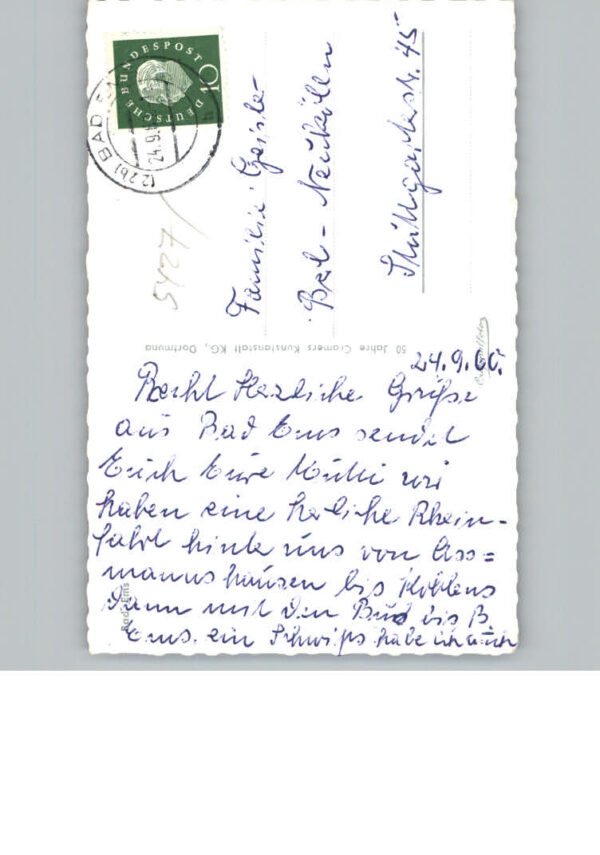 DEUTSCHE BUNDESPOST
10
(22b) BAD
24.9.
5427
Familie Geisler
Bel - Neukölln
Stuttgarterstr. 45
50 Jahre Cramers Kunstanstalt KG, Dortmund
Bad Ems
24.9.60.
Recht Herzliche Grüße
aus Bad Ems sendet
Euch Eure Mutti wir
haben eine herliche Rhein-
fahrt hinter uns von Ass=
mannshausen bis Koblens
Dann mit den Bus bis B.
Ems. ein Schwips habe ich auch